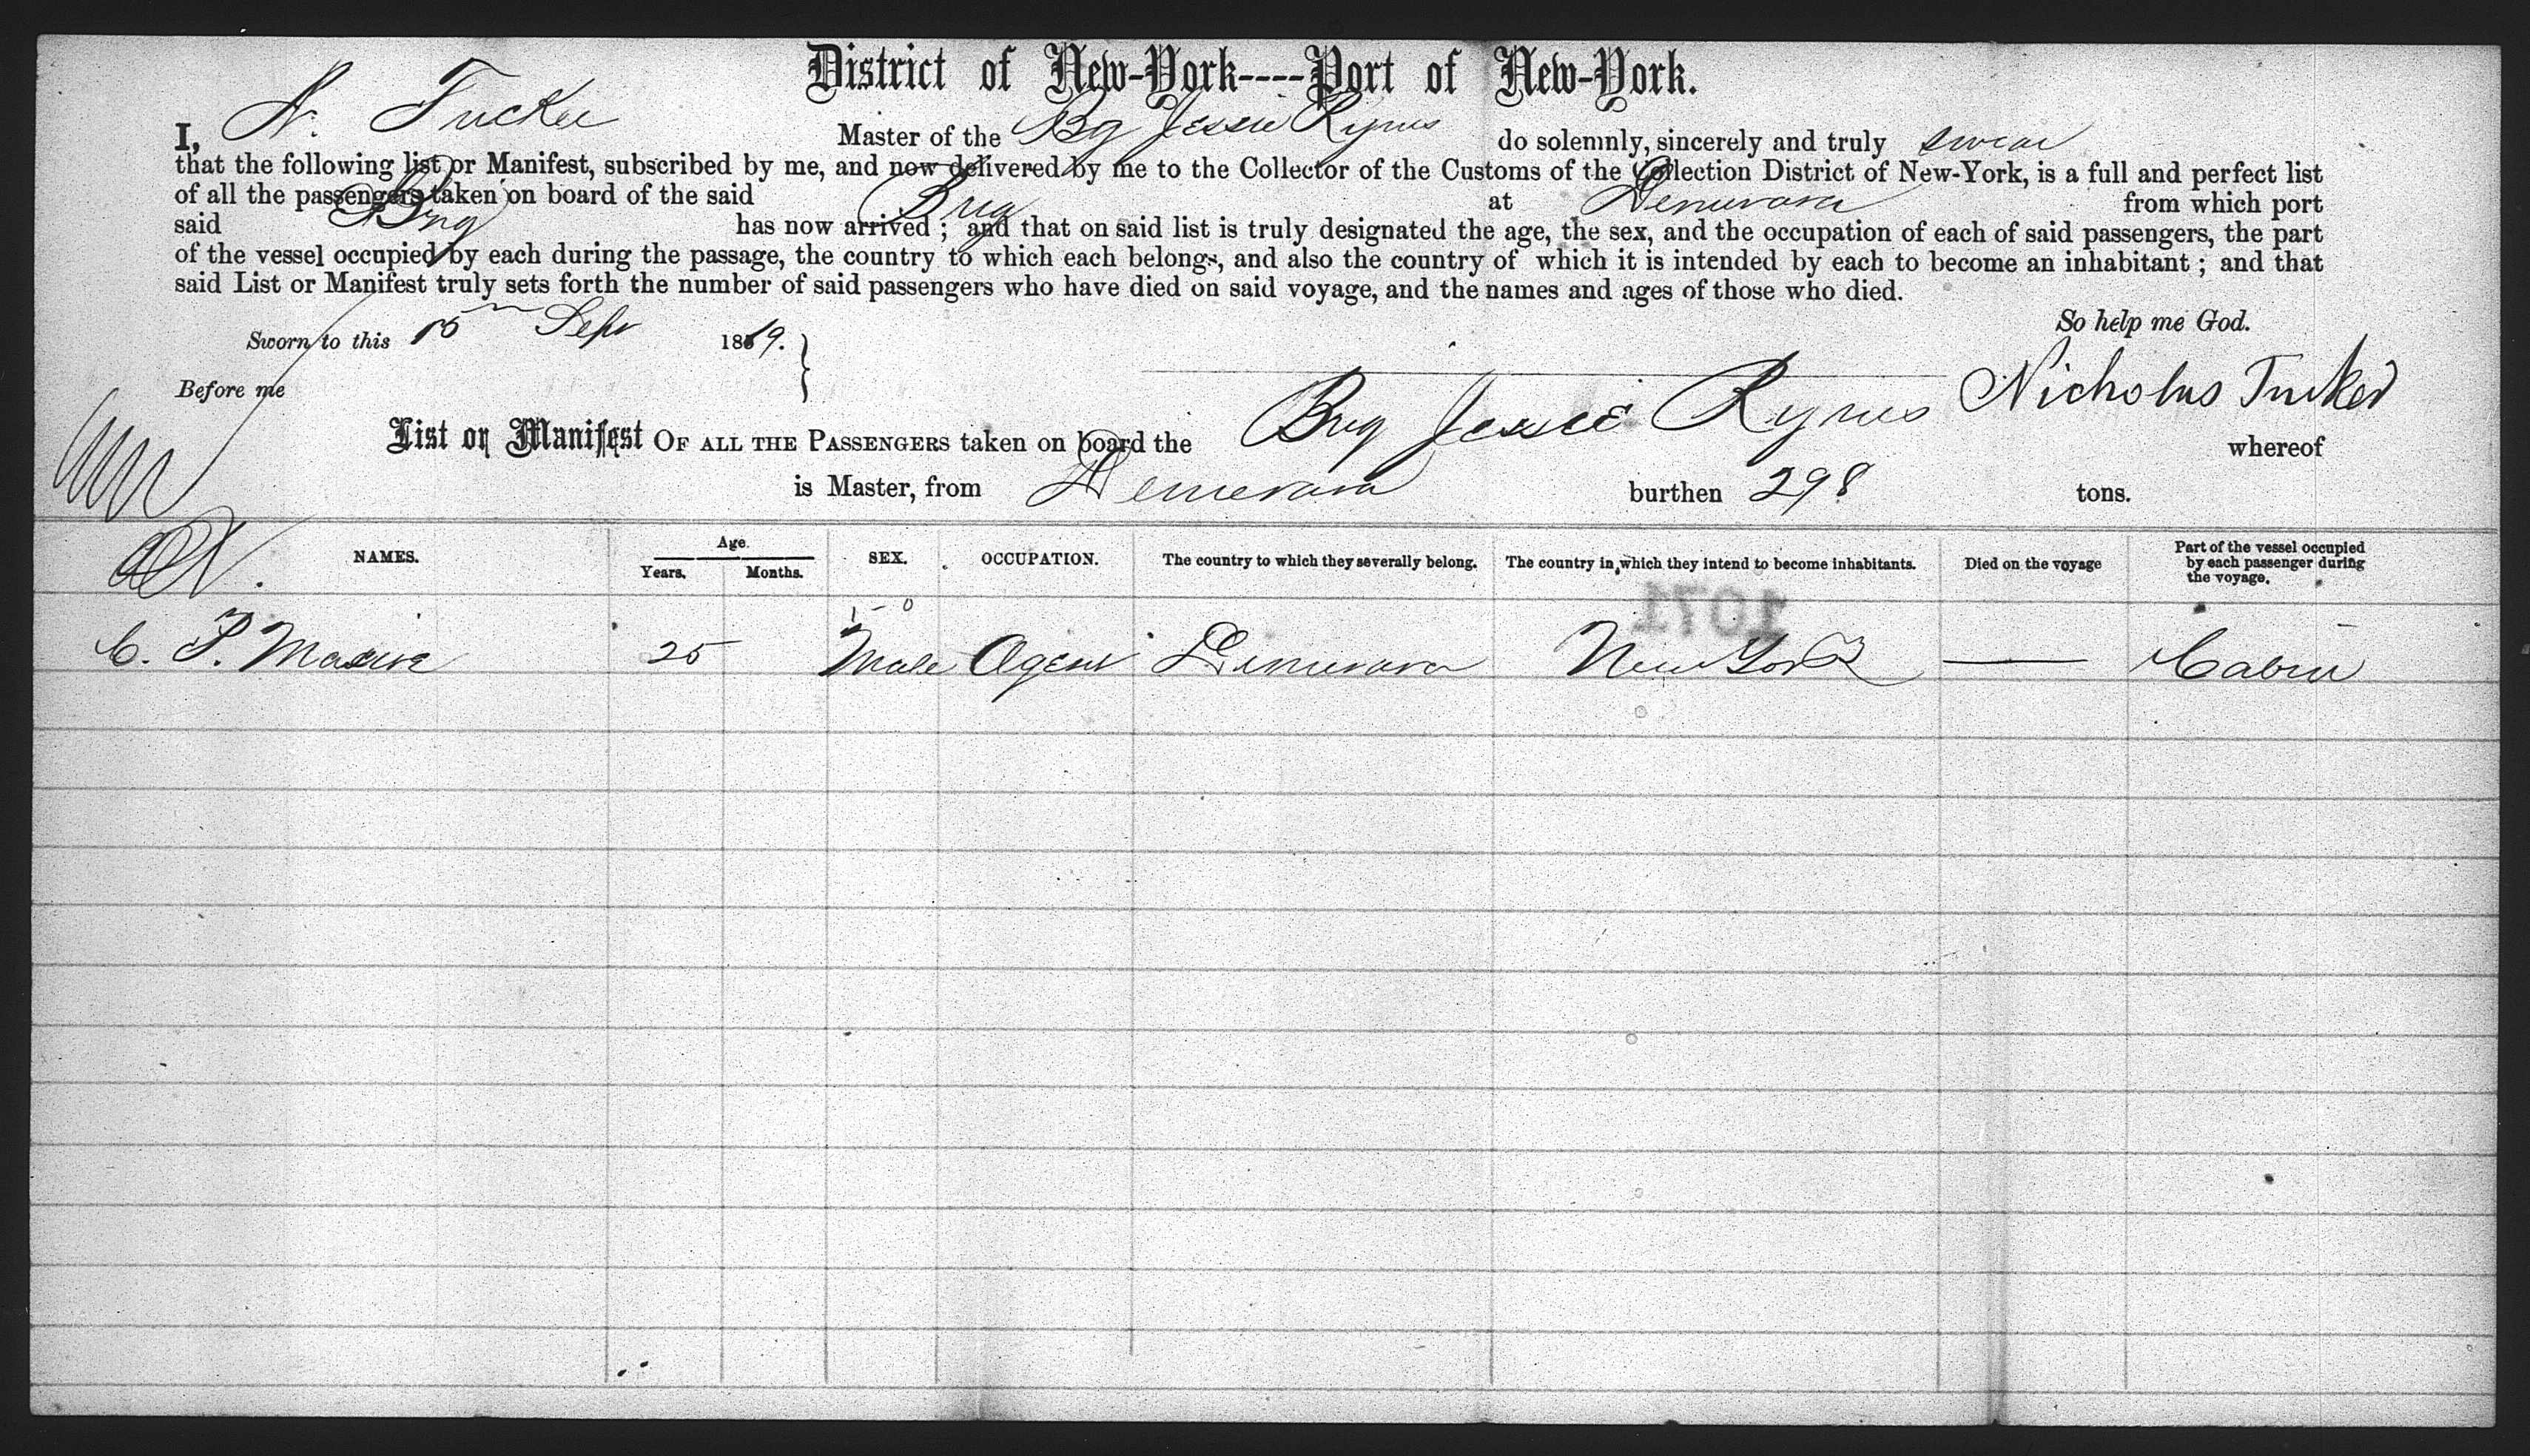 District of New-York----Port of New-York.
I, N. Tucker Master of the Bg Jessie Rynus do solemnly, sincerely and truly swear
that the following list or Manifest, subscribed by me, and now delivered by me to the Collector of the Customs of the Collection District of New-York, is a full and perfect list
of all the passengers taken on board of the said Brig at Demerara from which port
said Brig has now arrived ; and that on said list is truly designated the age, the sex, and the occupation of each of said passengers, the part
of the vessel occupied by each during the passage, the country to which each belongs, and also the country of which it is intended by each to become an inhabitant ; and that
said List or Manifest truly sets forth the number of said passengers who have died on said voyage, and the names and ages of those who died.
So help me God.
Sworn to this 15th Sept 18 9.
Before me
Nicholas Tucker
List or Manifest OF ALL THE PASSENGERS taken on board the Brig Jessie Rynus whereof
is Master, from Demerara burthen 298 tons.
NAMES. Age. Years. Months. SEX. OCCUPATION. The country to which they severally belong. The country in which they intend to become inhabitants. Died on the voyage Part of the vessel occupied by each passenger during the voyage.
1071
C. P. 25 Male Agent Demerara New York — Cabin